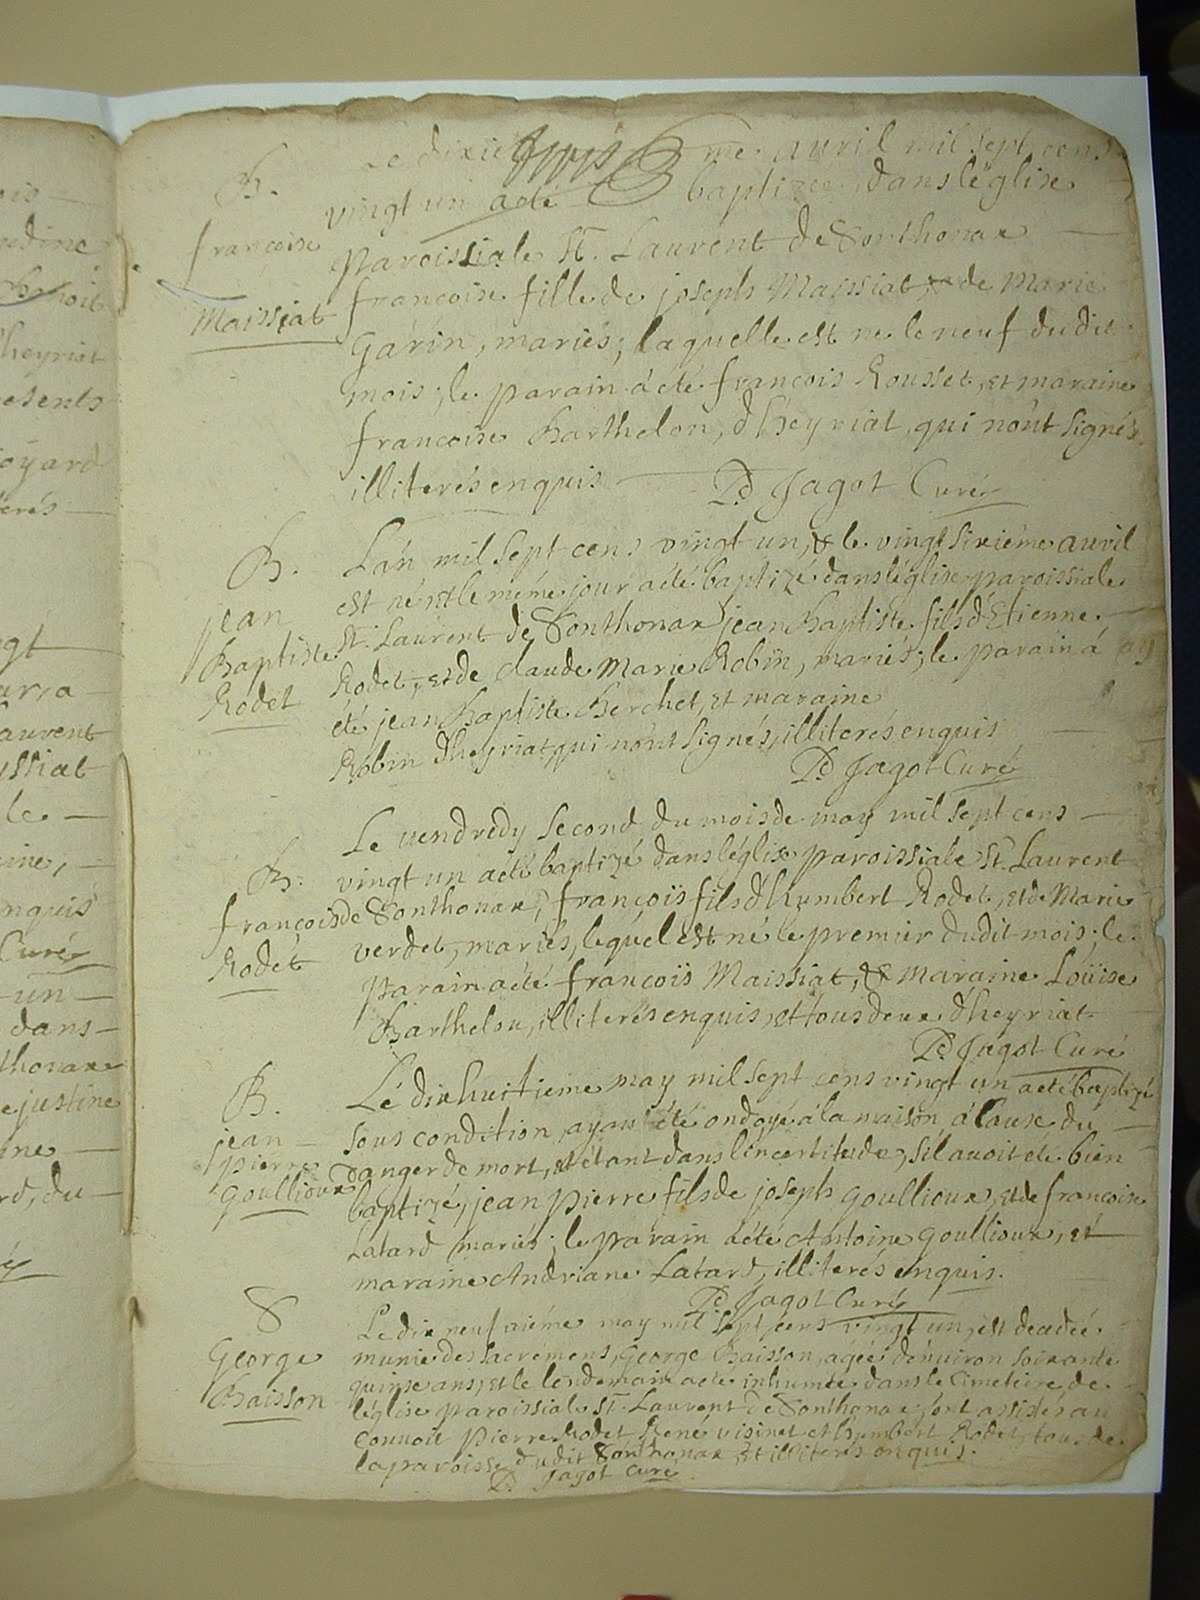 Le dixieme auril mil sept cens
B.
vingt un a eté baptizée dans l'églixe
françoise
paroissiale St. Laurent de Sonthonax
Maissiat
francoise fille de joseph Maissiat, & de Marie
Garin, mariés; laquelle est ne le neuf du dit
mois; le parain à eté françois Rousset, et maraine
francoise Barthelon, d'heyriat, qui n'ont signés
illiterés enquis
Pd Jagot Curé
B.
L'an mil sept cens vingt un, & le vingt sixiéme auril
jean
est né et le méme jour a eté baptizé dans l'églixe paroissiale
Baptiste
St. Laurent de Sonthonax jean Baptiste fils d'Etienne
Rodet
Rodet, et de Claude Marie Robin, mariés; le parain á
été jean Baptiste Berchet, et maraine
Robin d'heyriat, qui n'ont signés, illiterés enquis
Pd Jagot Curé
Le vendredy second du mois de may mil sept cens
B.
vingt un a eté baptizé dans l'églixe paroissiale St. Laurent
françois
de Sonthonax, françoïs fils d'humbert Rodet, et de Marie
Rodet
verdet, mariés, lequel est né le premier dudit mois; le
parain a eté françoïs Maissiat, & maraine Loüise
Barthelon, illiterés enquis, et tous deux d'heyriat
Pd Jagot Curé
B.
Lé dixhuitieme may mil sept cens vingt un a eté baptizé
jean
sous condition, ayant été ondoyé á la maison, á cause du
pierre
danger de mort, et étant dans l'incertitude, s'il auoit eté bien
goullioux
baptizé, jean pierre fils de joseph goullioux, et de francoise
Latard mariés; le parain a été Antoine goullioux, et
maraine Andriane Latard, illiterés enquis.
Pd Jagot Curé
S
Le dix neufuiéme may mil sept cens vingt un, est decedée
George
munie des sacremens, George Baisson, agée d'enuiron soixante
Baisson
quinse ans, et le lendemain a eté inhumée dans le Cimetiere de
l'églixe paroissiale St. Laurent de Sonthonax; sont assistés au
conuoit pierre Rodet René visinet et humbert Rodet, tous de
la paroisse dudit Sonthonax, et illiterés enquis.
Pd Jagot Curé